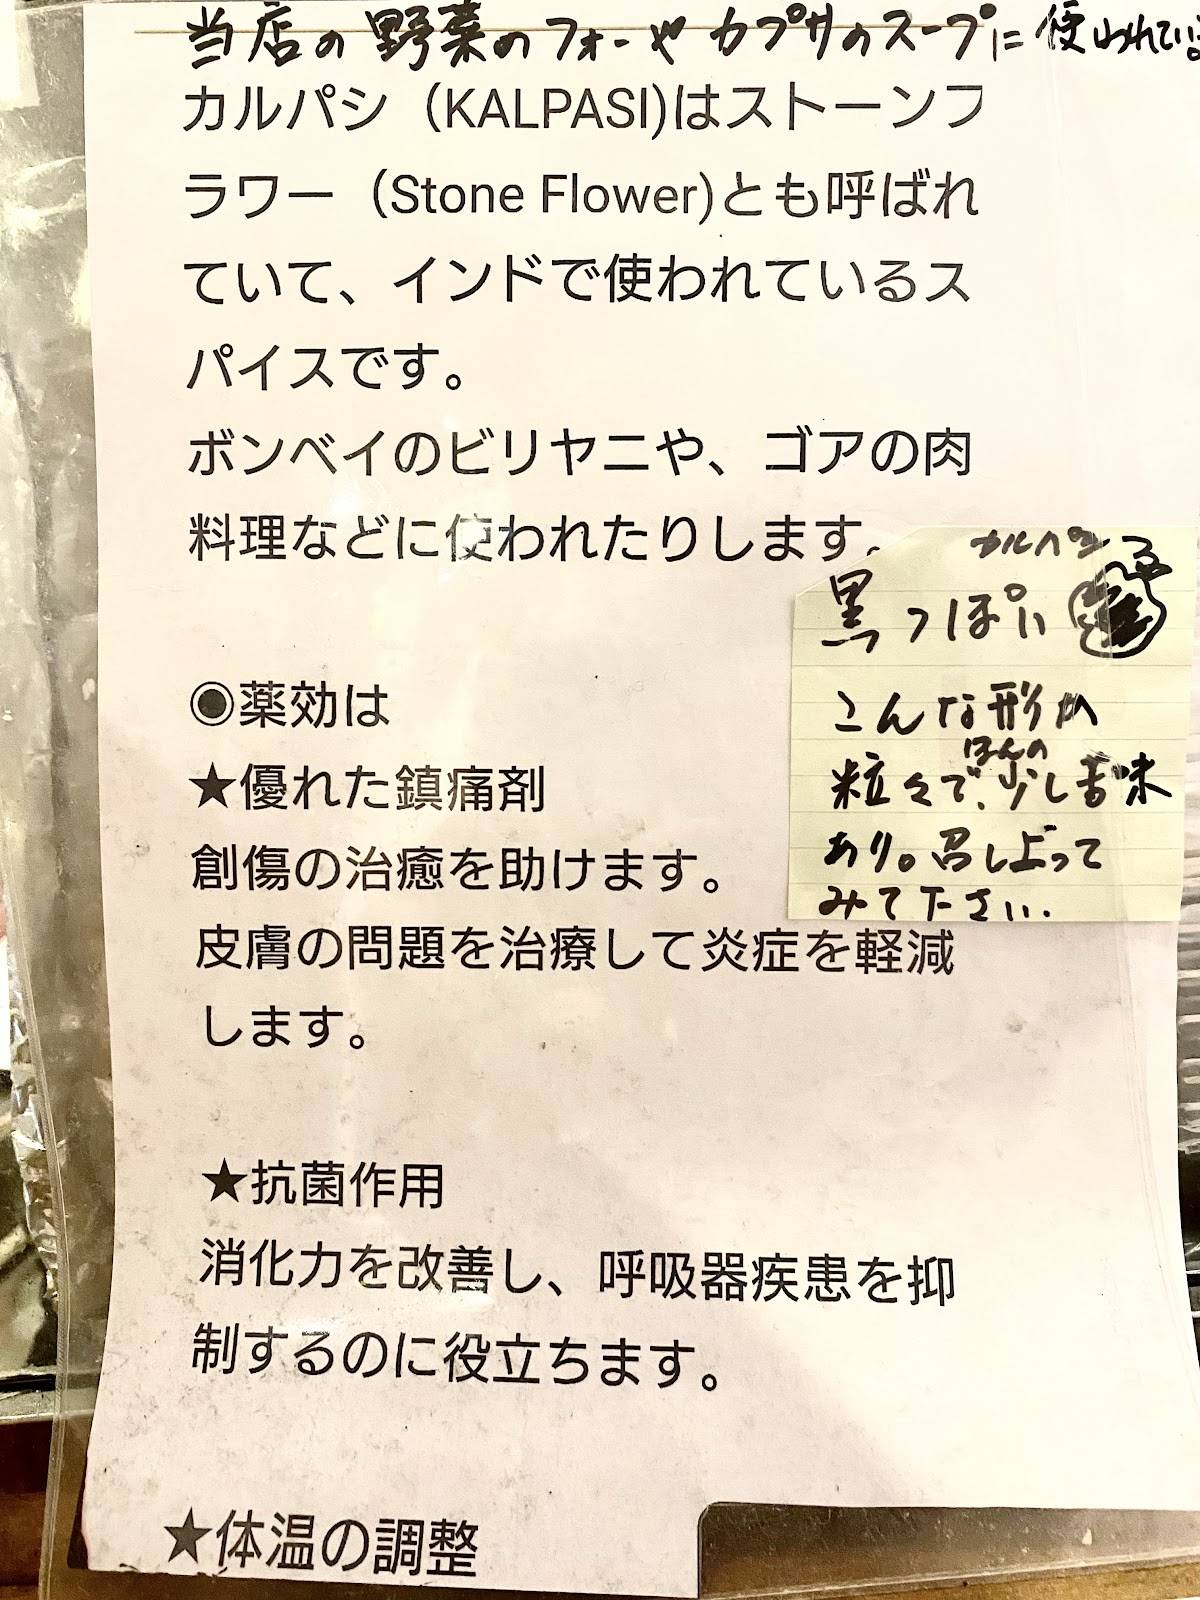 当店の野菜のフォーや カプサのスープに使われている
カルパシ（KALPASI)はストーンフ
ラワー（Stone Flower)とも呼ばれ
ていて、インドで使われているス
パイスです。
ボンベイのビリヤニや、ゴアの肉
料理などに使われたりします。
◉薬効は
★優れた鎮痛剤
創傷の治癒を助けます。
皮膚の問題を治療して炎症を軽減
します。
★抗菌作用
消化力を改善し、呼吸器疾患を抑
制するのに役立ちます。
★体温の調整
カルパシ
黒っぽい
こんな形か
粒々で、ほんの少し苦味
あり。召し上って
みて下さい.